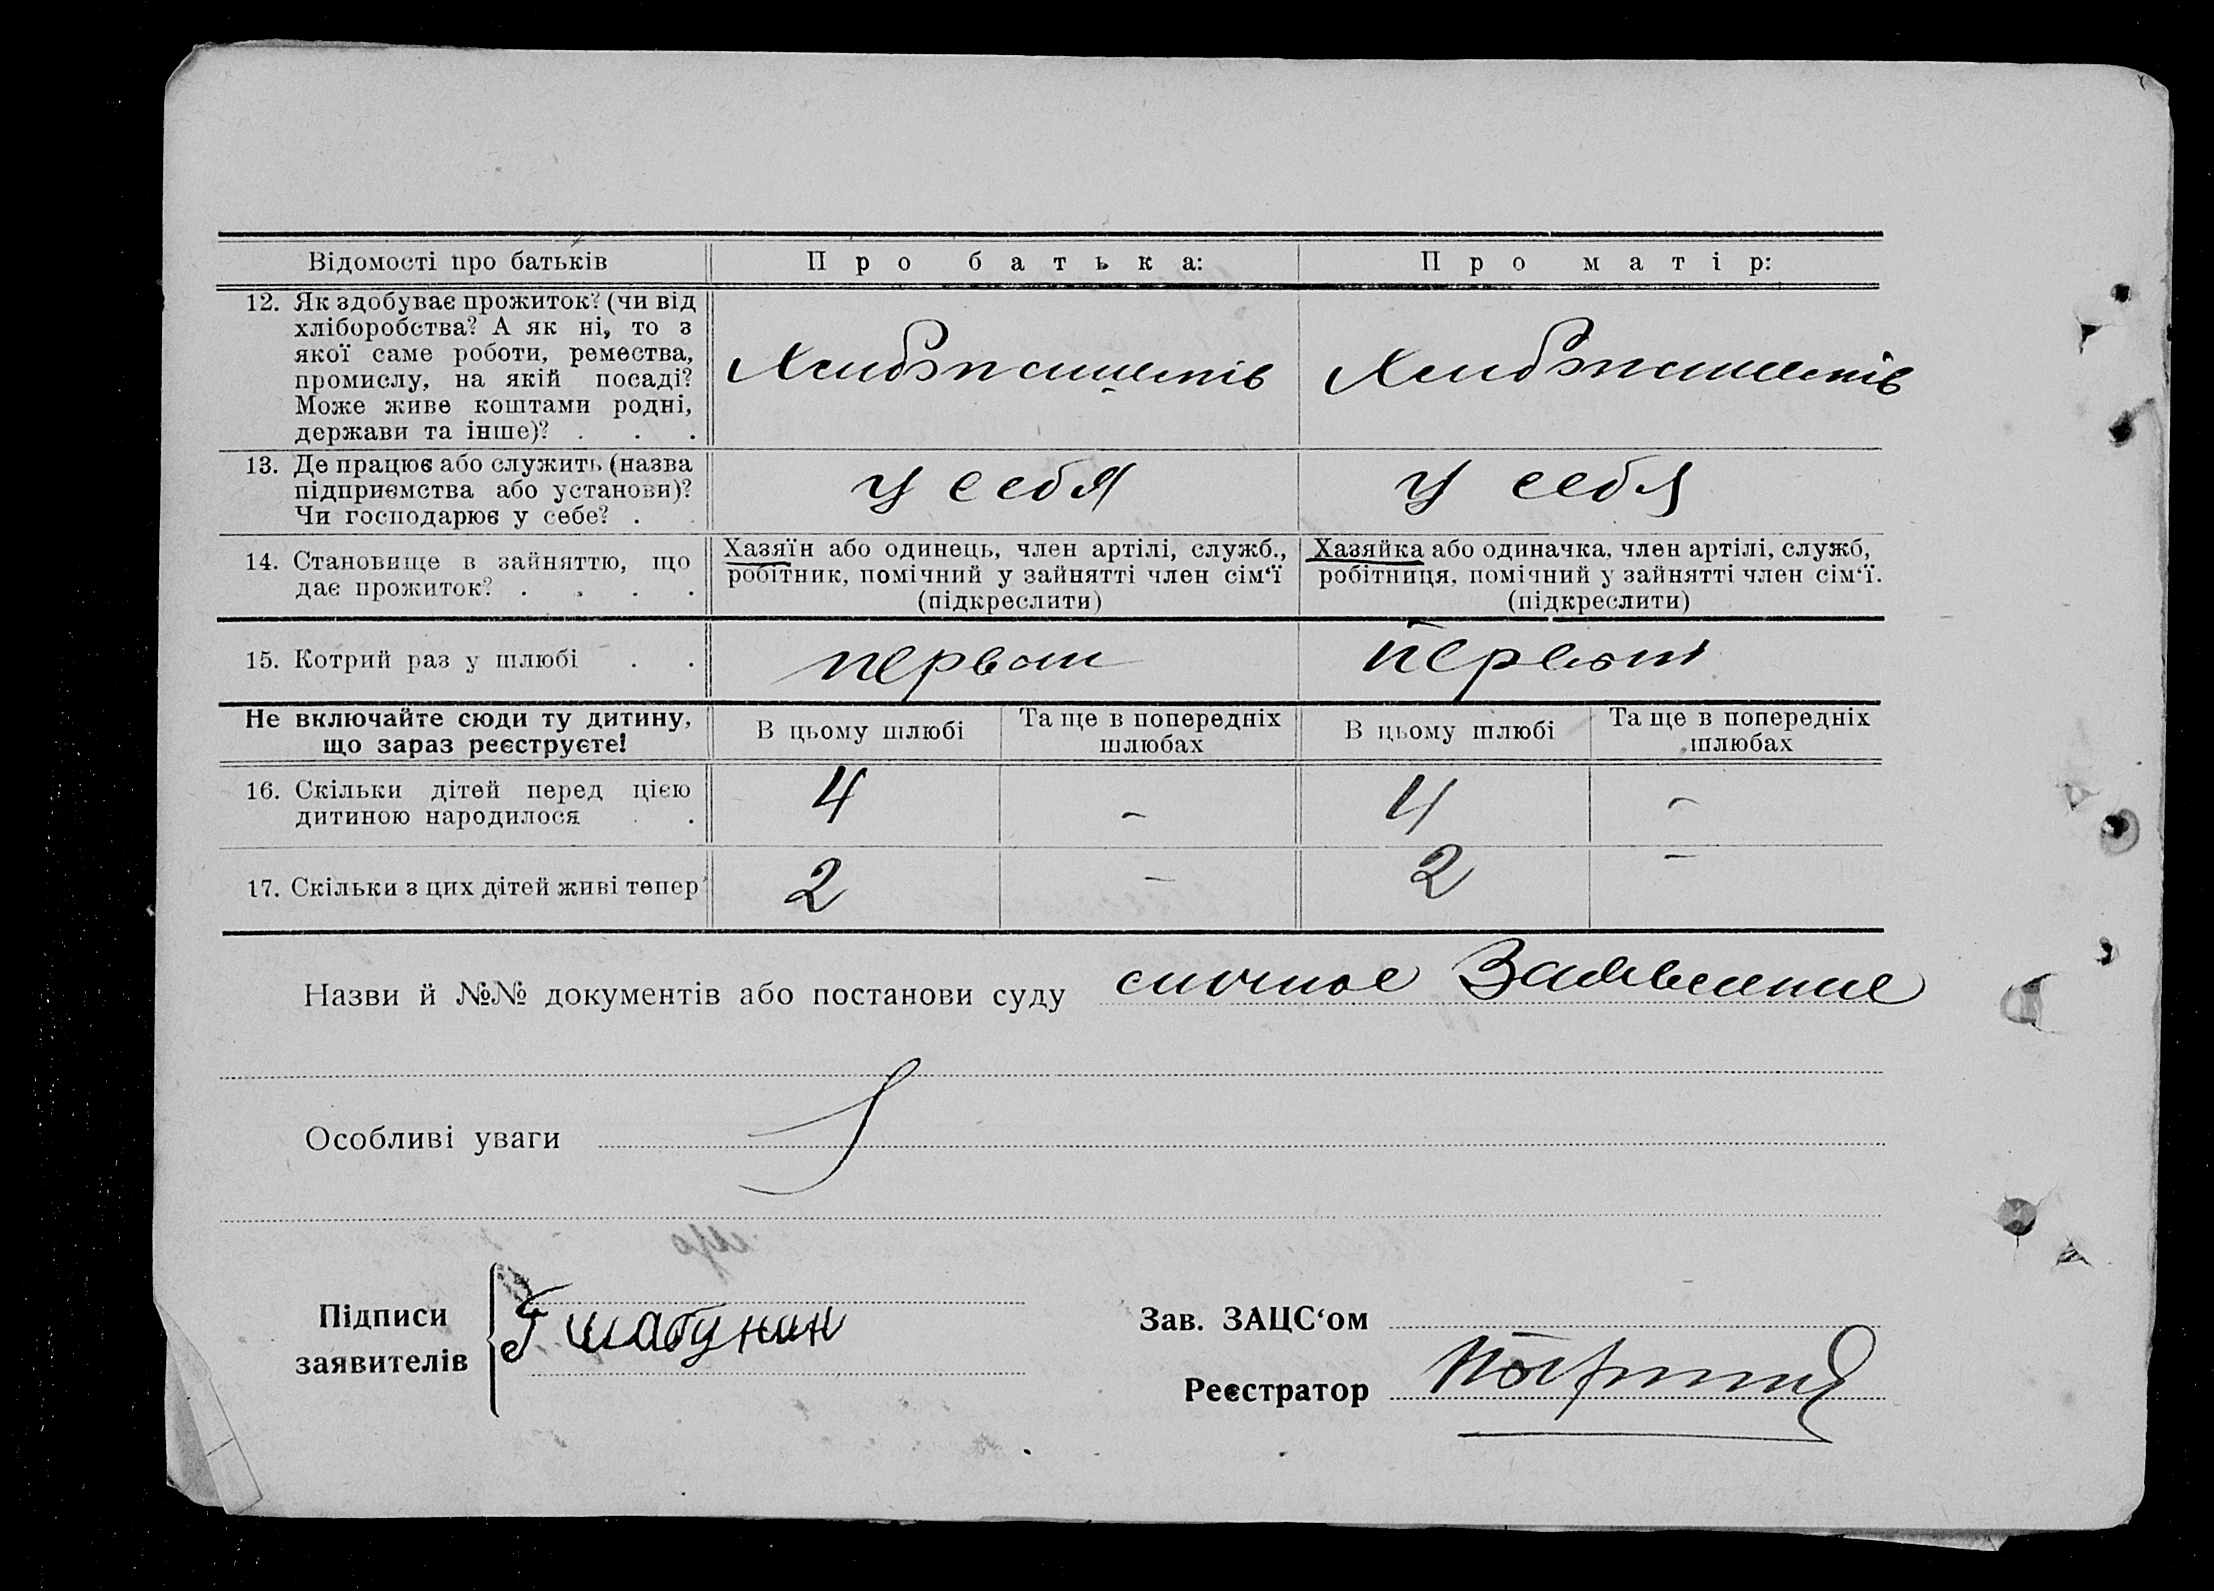 Відомості про батьків Про батька: Про матір:
12. Як здобуває прожиток? (чи від
хліборобства? А як ні, то з
якої саме роботи, ремества,
промислу, на якій посаді?
Може живе коштами родні,
держави та інше)? . . .
13. Де працює або служить (назва
підприємства або установи)?
Чи господарює у себе? .
у себя у себя
14. Становище в зайняттю, що
дає прожиток? . . . .
Хазяїн або одинець, член артілі, служб.,
робітник, помічний у зайнятті член сім‘ї
(підкреслити)
Хазяйка або одиначка, член артілі, служб,
робітниця, помічний у зайнятті член сім‘ї.
(підкреслити)
15. Котрий раз у шлюбі . .
первой
Не включайте сюди ту дитину,
що зараз реєструєте!
В цьому шлюбі
Та ще в попередніх
шлюбах
В цьому шлюбі
Та ще в попередніх
шлюбах
16. Скільки дітей перед цією
дитиною народилося . .
4 – 4 –
17. Скільки з цих дітей живі тепер 2 – 2 –
Назви й №№ документів або постанови суду личное Заявление
Особливі уваги
Підписи
заявителів
Г Шабунин
Зав. ЗАЦС‘ом
Реєстратор